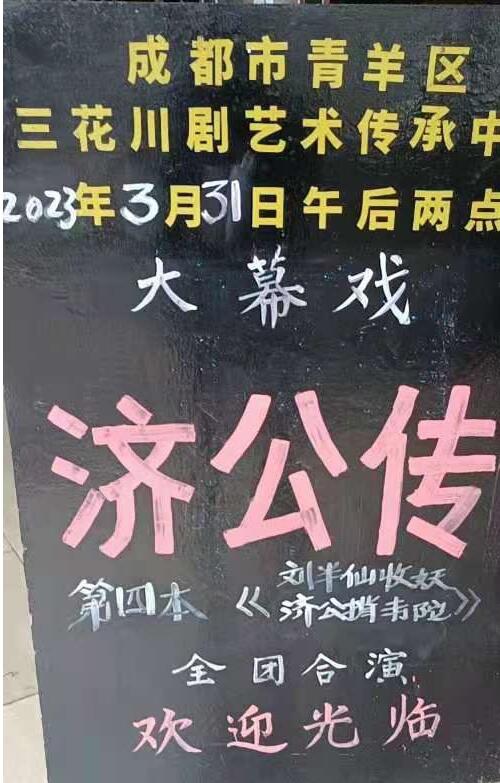 成都市青羊区
三花川剧艺术传承中
2023年3月31日午后两点
大幕戏
济公传
第四本《刘半仙收妖
济公捎韦陀》
全团合演
欢迎光临